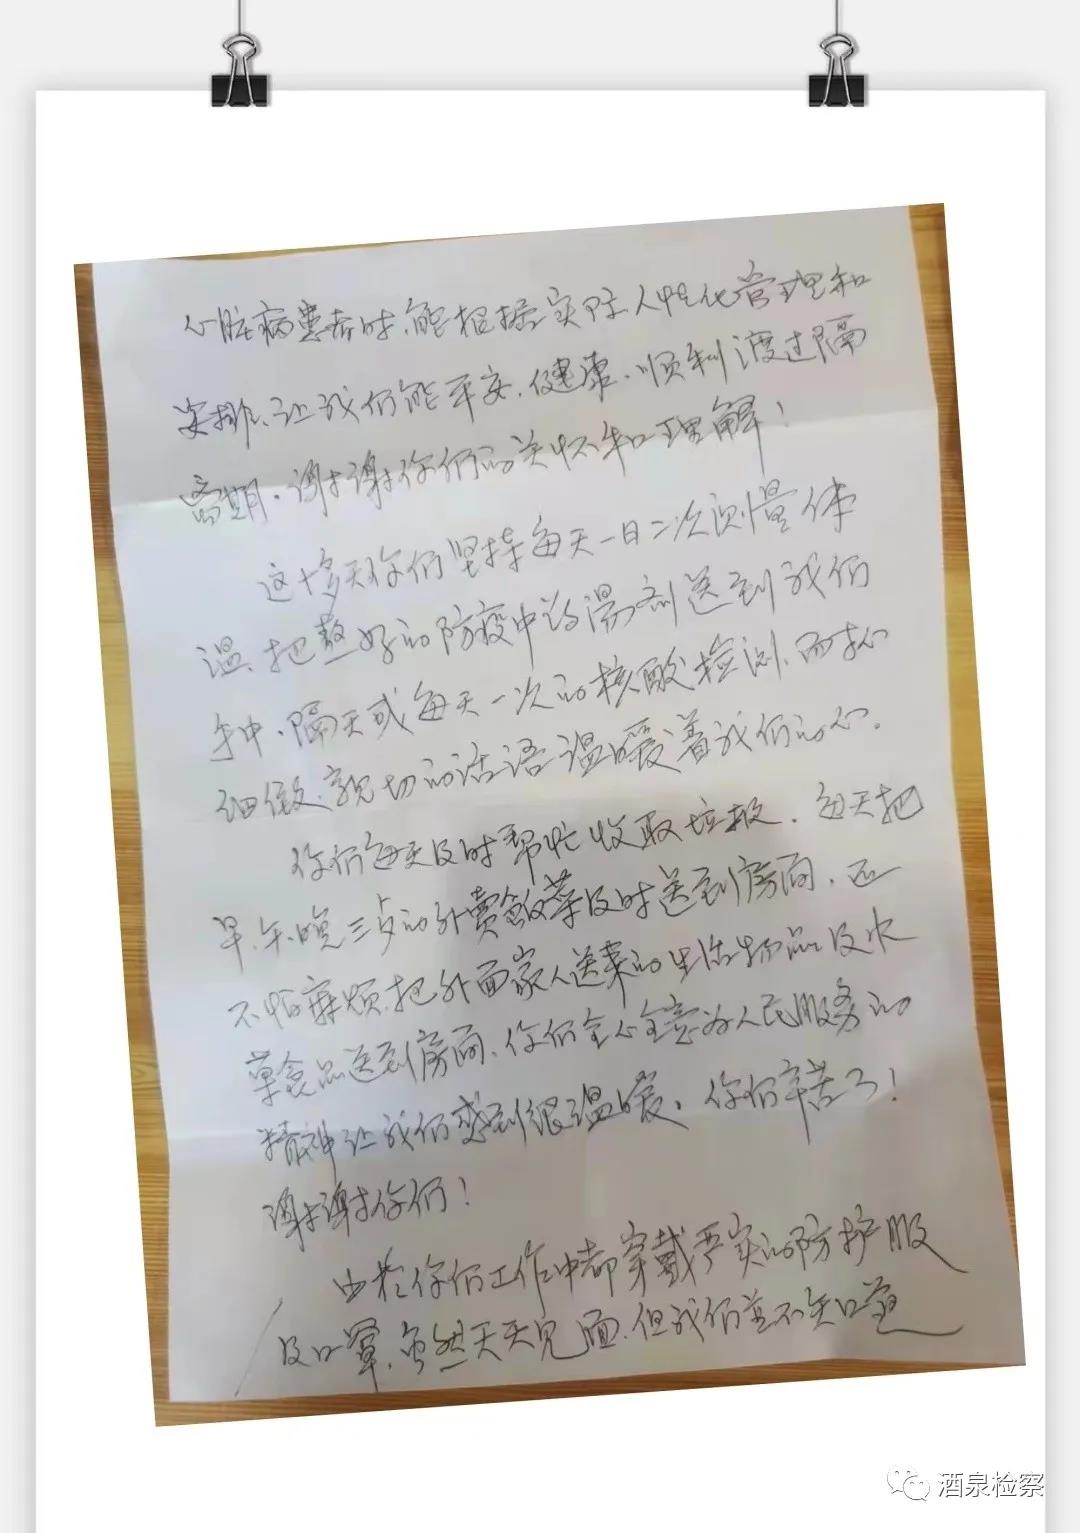 心脏病患者时,能根据实际人性化管理和
安排、让我们能平安、健康、顺利渡过隔
离期。谢谢你们的关怀和理解!
这十多天你们坚持每天一日二次测量体
温、把熬好的防疫中药汤剂送到我们
手中、隔天或每天一次的核酸检测、而且
细微、亲切的话语温暖着我们的心。
你们每天及时帮忙收取垃圾、每天把
早、午、晚三点的外卖飯菜及时送到房间、还
不怕麻烦、把外面家人送来的生活物品及水
菓食品送到房间、你们全心全意为人民服务的
精神让我们感到很温暖。你们辛苦了!
谢谢你们!
由於你们工作中都穿戴严实的防护服
及口罩、虽然天天见面、但我们并不知道
酒泉检察